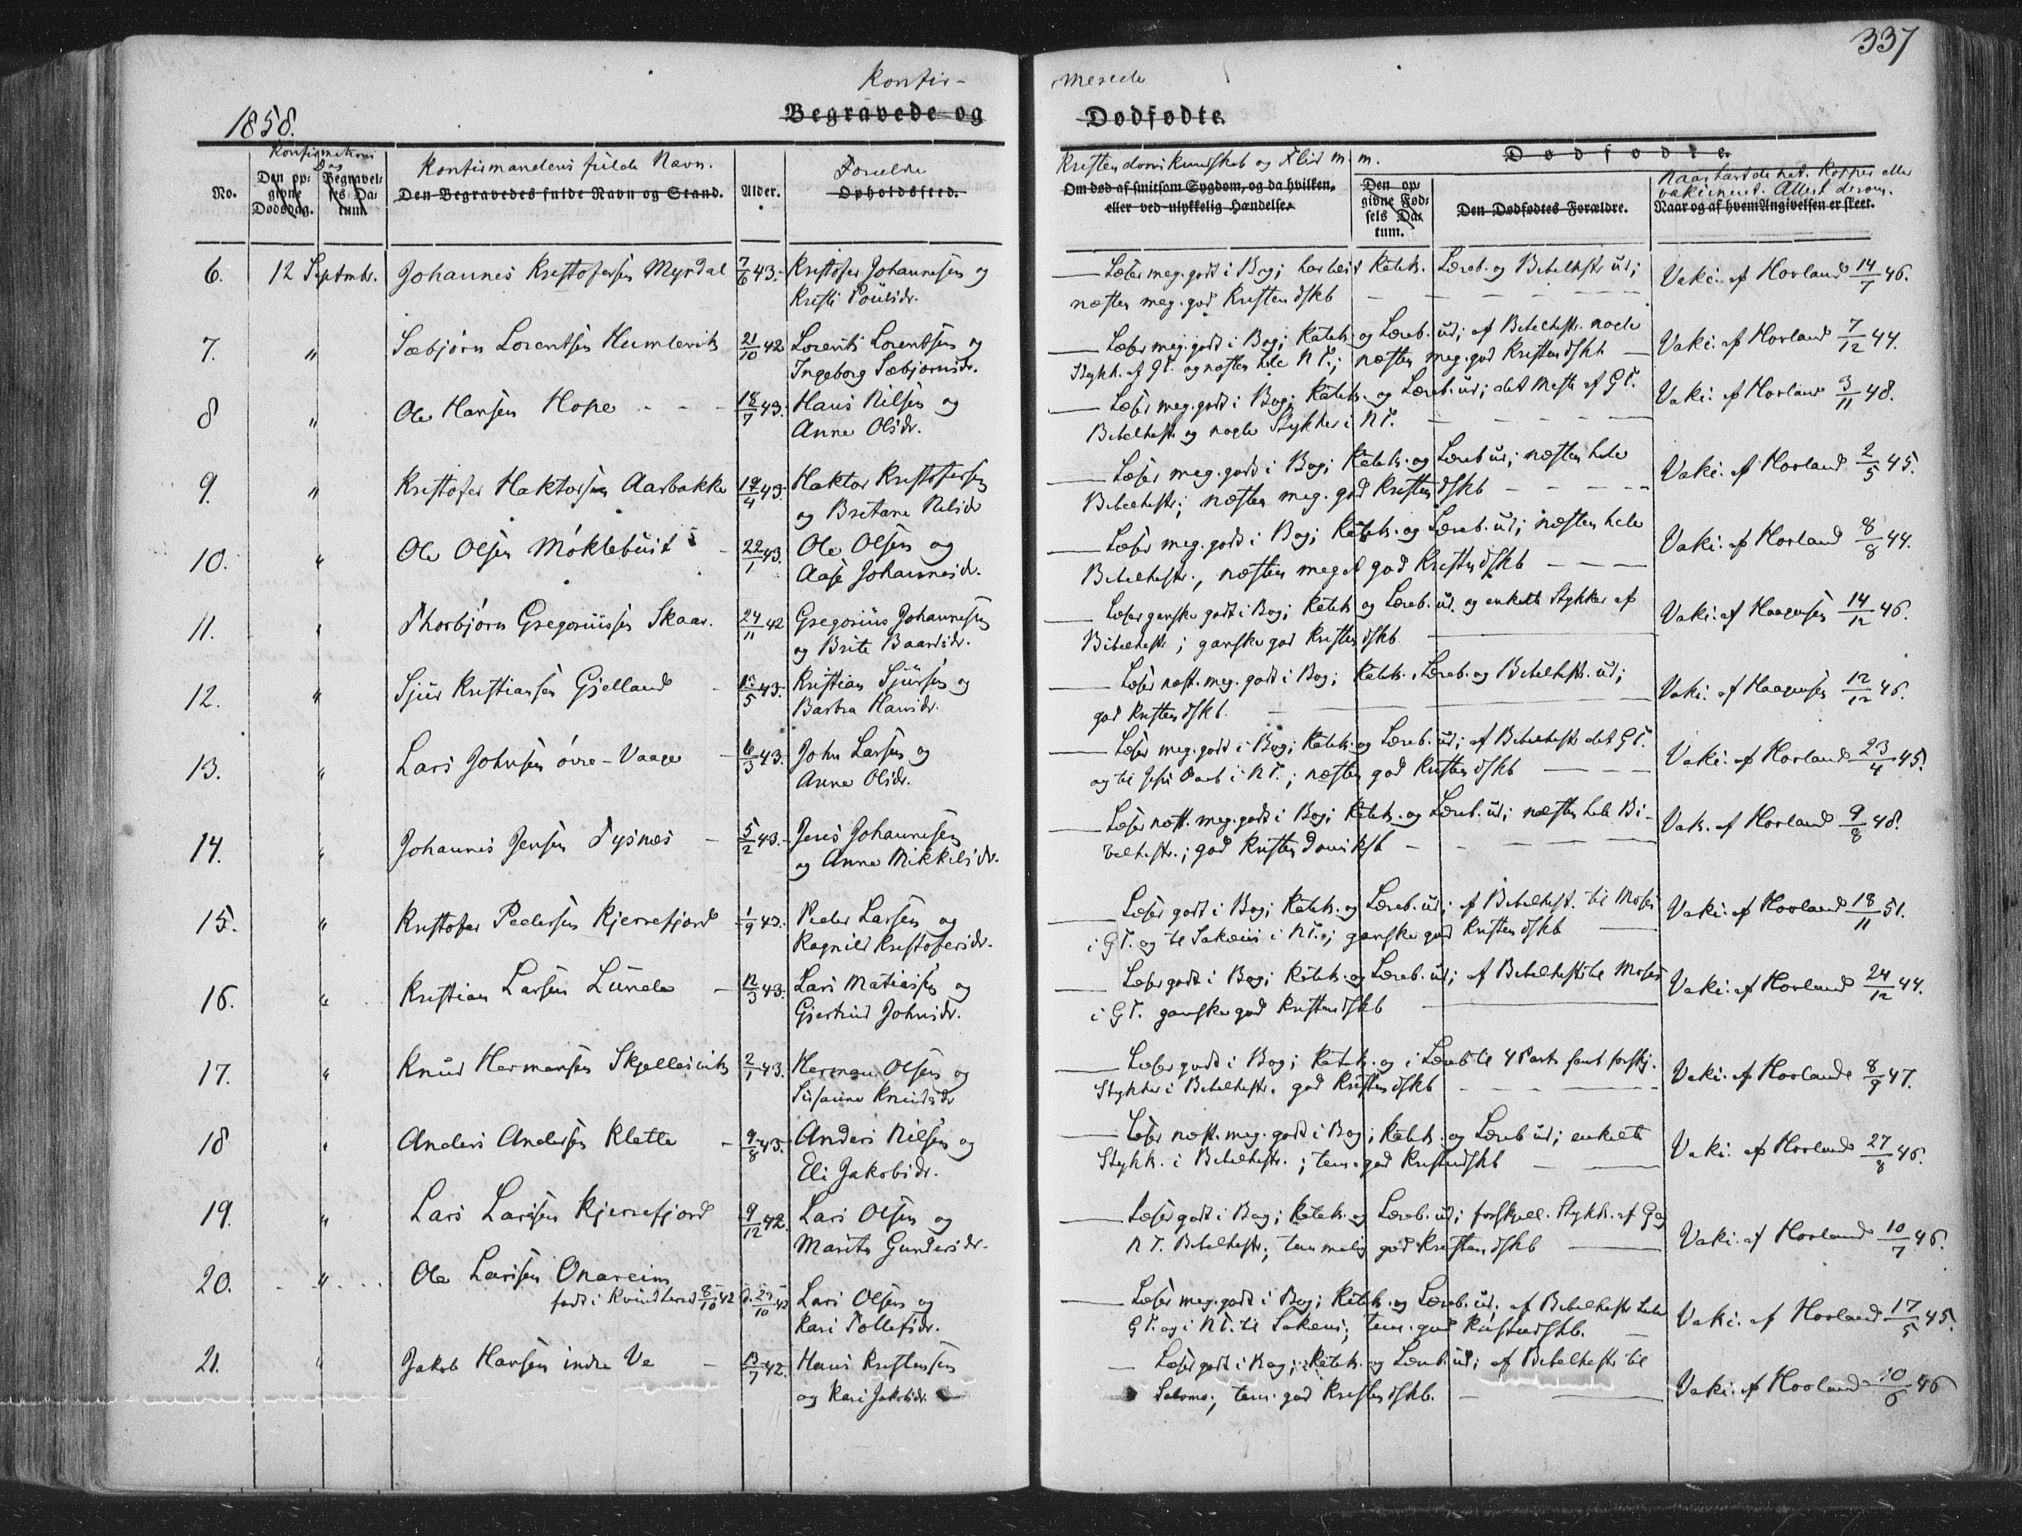 337
Konfir-
merede
1858.
Begravede og
Dødfødte.
Konfirmations
Dag
Konfirmandens fulde Navn.
Forældre
Kristendomskundskab og Flid m. m.
Dødfødte.
Naar havt de nat. Kopper eller
vakcineret. Attest derom.
No.
Den op-
givne
Dødsdag.
Begravel-
ses-Da-
tum.
Den Begravedes fulde Navn og Stand.
Alder.
Opholdssted.
Om død af smitsom Sygdom, og da hvilken,
eller ved ulykkelig Hændelse.
Den op-
givne Fød-
sels Da-
tum.
Den Dødfødtes Forældre.
Naar og af hvem Angivelsen er skeet.
6. 12 Septmbr. Johannes Kristofersen Myrdal 7/6 43. Kristofer Johannesen og
Kristi Poulsdr.
Læser meg. godt i Bog; har læst Katek. Læreb. og Bibelhist. ud;
næsten meg. god Kristendskb
Vakc. af Hovland 14/7 46.
7. " Sæbjørn Lorentsen Humlevik 21/10 42 Lorents Lorentsen og
Ingeborg Sæbjørnsdr.
Læser meg. godt i Bog; Katek. og Læreb. ud; af Bibelhistr. nogle
Stykk. af GT. og næsten hele NT.; næsten meg. god Kristendskb
Vakc. af Hovland 7/12 44.
8 " Ole Hansen Hope 18/7 43. Hans Nilsen og
Anne Olsdr.
Læser meg. godt i Bog; Katek. og Læreb. ud; det meste af GT.
Bibelhistr. og nogle Stykker i NT.
Vakc. af Hovland 3/11 48.
9. " Kristofer Haktorsen Aarbakke 19/4 43. Haktor Kristofersen
og Britane Nilsdr
Læser meg. godt i Bog; Katek. og Læreb. ud; næsten hele
Bibelhistr.; næsten meg. god Kristendskb
Vakc. af Hovland 2/5 45.
10. " Ole Olsen Møklebust 22/1 43. Ole Olsen og
Aase Johannesdr.
Læser meg. godt i Bog; Katek. og Læreb. ud; næsten hele
Bibelhistr., næsten meget god Kristendskb
Vakc. af Hovland 8/8 44.
11. " Thorbjørn Gregoriussen Skaar. 24/11 42 Gregorius Johannesen
og Brite Baardsdr.
Læser ganske godt i Bog; Katek. og Læreb. ud. og enkelte Stykker af
Bibelhistr; ganske god Kristendskb.
Vakc. af Haagensen 14/12 46.
12. " Sjur Kristiansen Gjelland 13/5 43. Kristian Sjursen og
Barbra Hansdr.
Læser næst. meg. godt i Bog; Katek., Læreb. og Bibelhistr. ud;
god Kristendskb.
Vakc. af Haagensen 12/12 46.
13. " Lars Johnsen øvre-Vaage 6/3 43. John Larsen og
Anne Olsdr.
Læser meg. godt i Bog; Katek. og Læreb. ud; af Bibelhistr det GT.
og til Jesu Daab i NT.; næsten god Kristendskb
Vakc. af Hovland 23/4 45.
14. " Johannes Jensen Tysnæs 5/2 43. Jens Johannesen
og Anne Mikkelsdr.
Læser næst. meg. godt i Bog; Katek. og Læreb. ud; næsten hele Bi-
belhistr.; god Kristendomskb
Vak. af Hovland 9/8 48.
15. " Kristofer Pedersen Kjerrefjord 1/9 43. Peder Larsen og
Ragnild Kristofersdr.
Læser godt i Bog; Katek. og Læreb. ud; af Bibelhist. til Moses
i GT. og til Sakæus i NT.; ganske god Kristendskb
Vakc. af Hovland 18/11 51.
16. " Kristian Larsen Lunde 12/3 43. Lars Matiassen og
Gjertrud Johnsdr.
Læser godt i Bog; Katek. og Læreb. ud; af Bibelhistr til Moses
i GT. ganske god Kristendskb
Vakc. af Hovland 24/12 44.
17. " Knud Hermansen Skjellesvik 2/1 43. Herman Olsen og
Susanne Knudsdr
Læser godt i Bog; Katek. og i Læreb til 4 Part samt forskj.
Stykker i Bibelhistr. god Kristendskb
Vakc. af Hovland 8/9 47.
18 " Anders Andersen Klette 9/8 43. Anders Nilsen og
Eli Jakobsdr.
Læser næst. meg. godt i Bog; Katek. og Læreb ud; enkelte
Stykk. i Bibelhistr.; tem. god Kristendskb
Vakc. af Hovland 27/8 46.
19. " Lars Larsen Kjerrefjord 9/12 42. Lars Olsen og
Marita Gundersdr.
Læser godt i Bog; Katek. og Læreb. ud; forskjell. Stykk. af G og
NT. Bibelhistr; temmelig god Kristendskb
Vakc. af Hovland 10/7 46.
20. " Ole Larsen Onareim
født i Kvindhered 8/10 42 Lars Olsen og
Kari Tollefsdr.
Læser meg. godt i Bog; Katek. og Læreb. ud. af Bibelhistr hele
GT. og i NT. til Sakæus; tem. god Kristendskb.
Vakc. af Hovland 17/5 45.
21. " Jakob Hansen indre Ve 13/7 42. Hans Kristensen
og Kari Jakobsdr.
Læser godt i Bog; Katek. og Læreb. ud; af Bibelhistr til
Salomo; tem. god Kristendskb.
Vakc. af Hovland 10/6 46